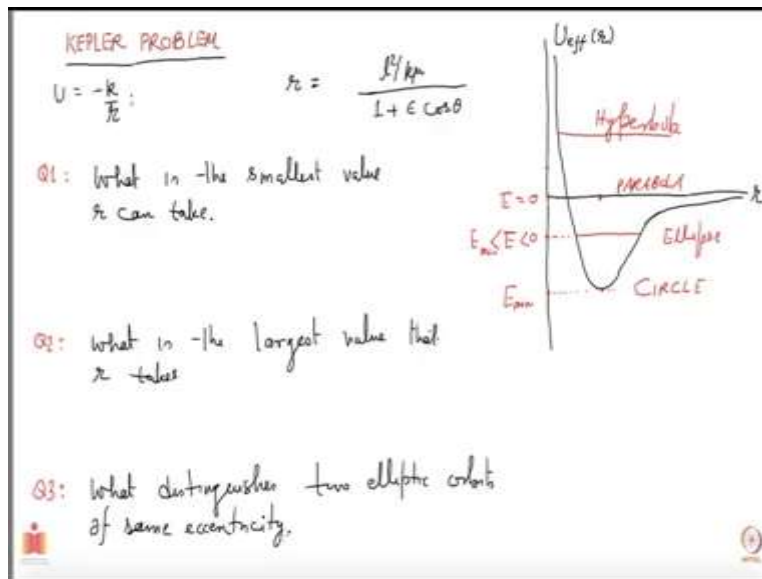 KEPLER PROBLEM
U = -k/r :
r = l²/kμ / 1 + ε cosθ
Q1: What is the smallest value
r can take.
Q2: What is the largest value that
r takes
Q3: What distinguishes two elliptic orbits
of same eccentricity.
U_eff(r)
Hyperbola
E=0
PARABOLA
r
E_min<E<0
Ellipse
E_min
CIRCLE